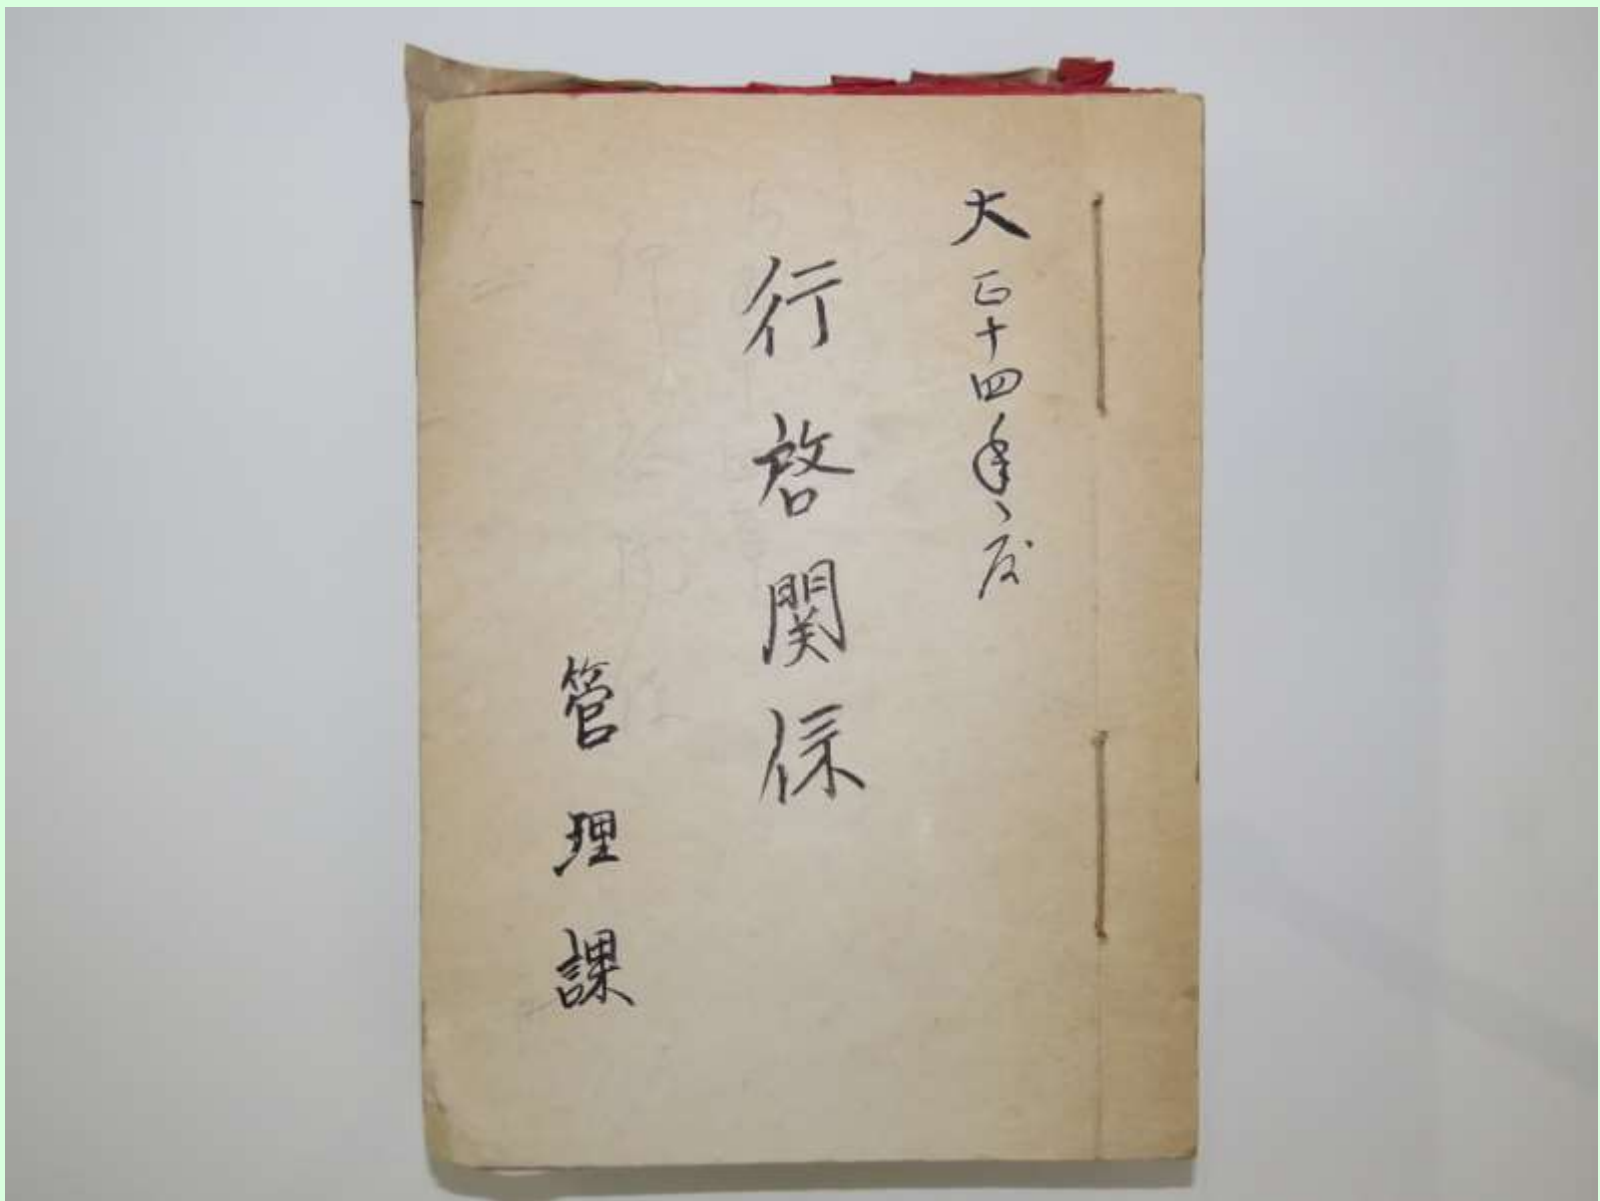 大正十四年度
行啓関係
管理課